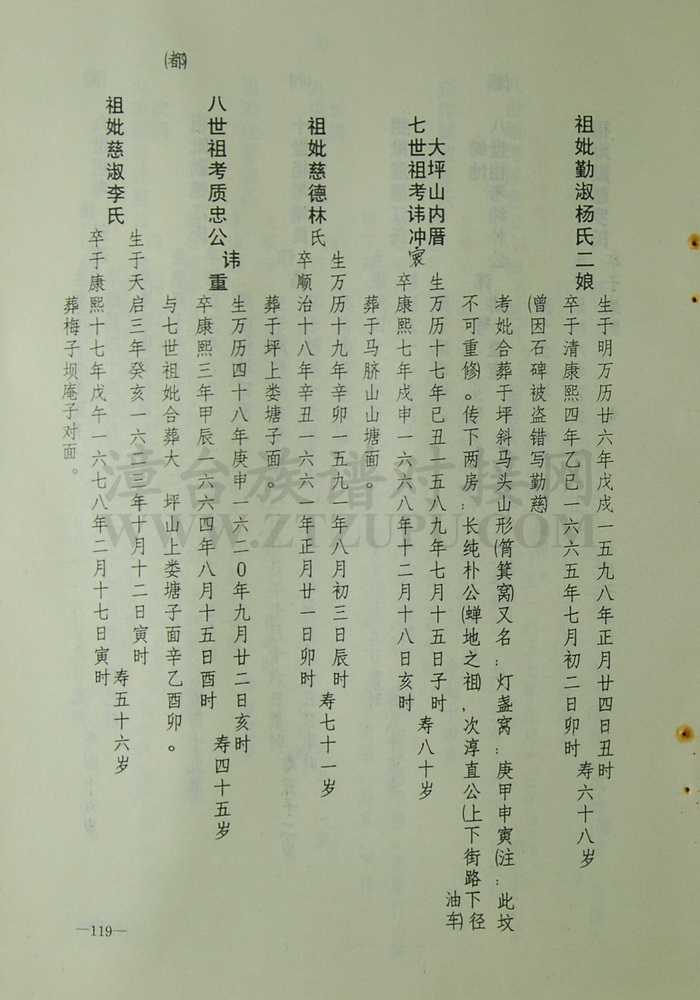 祖妣勤淑杨氏二娘
生于明万历廿六年戊戌一五九八年正月廿四日丑时
卒于清康熙四年乙巳一六六五年七月初二日卯时
寿六十八岁
(曾因石碑被盗错写勤慈)
考妣合葬于坪斜马头山形(筲箕窝)又名:灯盏窝:庚甲申寅(注:此坟
不可重修)。传下两房:长纯朴公(蝉地之祖),次淳直公(上下街路下径
油车)
大坪山内厝
七世祖考讳冲寰
生万历十七年己丑一五八九年七月十五日子时
卒康熙七年戊申一六六八年十二月十八日亥时
寿八十岁
葬于马脐山山塘面。
祖妣慈德林氏
生万历十九年辛卯一五九一年八月初三日辰时
卒顺治十八年辛丑一六六一年正月廿一日卯时
寿七十一岁
葬于坪上娄塘子面。
八世祖考质忠公讳重
(都)
生万历四十八年庚申一六二0年九月廿二日亥时
卒康熙三年甲辰一六六四年八月十五日酉时
寿四十五岁
与七世祖妣合葬大 坪山上娄塘子面辛乙酉卯。
祖妣慈淑李氏
生于天启三年癸亥一六二三年十月十二日寅时
卒于康熙十七年戊午一六七八年二月十七日寅时
寿五十六岁
葬梅子坝庵子对面。
—119—
WWW.ZTZUPU.COM